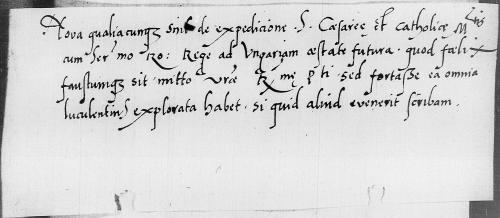 Nova qualiacunq; sint de expedicione S. Caesaree et Catholice M.tis
cum Ser.mo Ro. Rege ad Ungariam aestate futura quod foelix
faustumq; sit mitto V.re me p ti sed fortasse ea omnia
luculentius explorata habet. si quid aliud evenerit scribam.